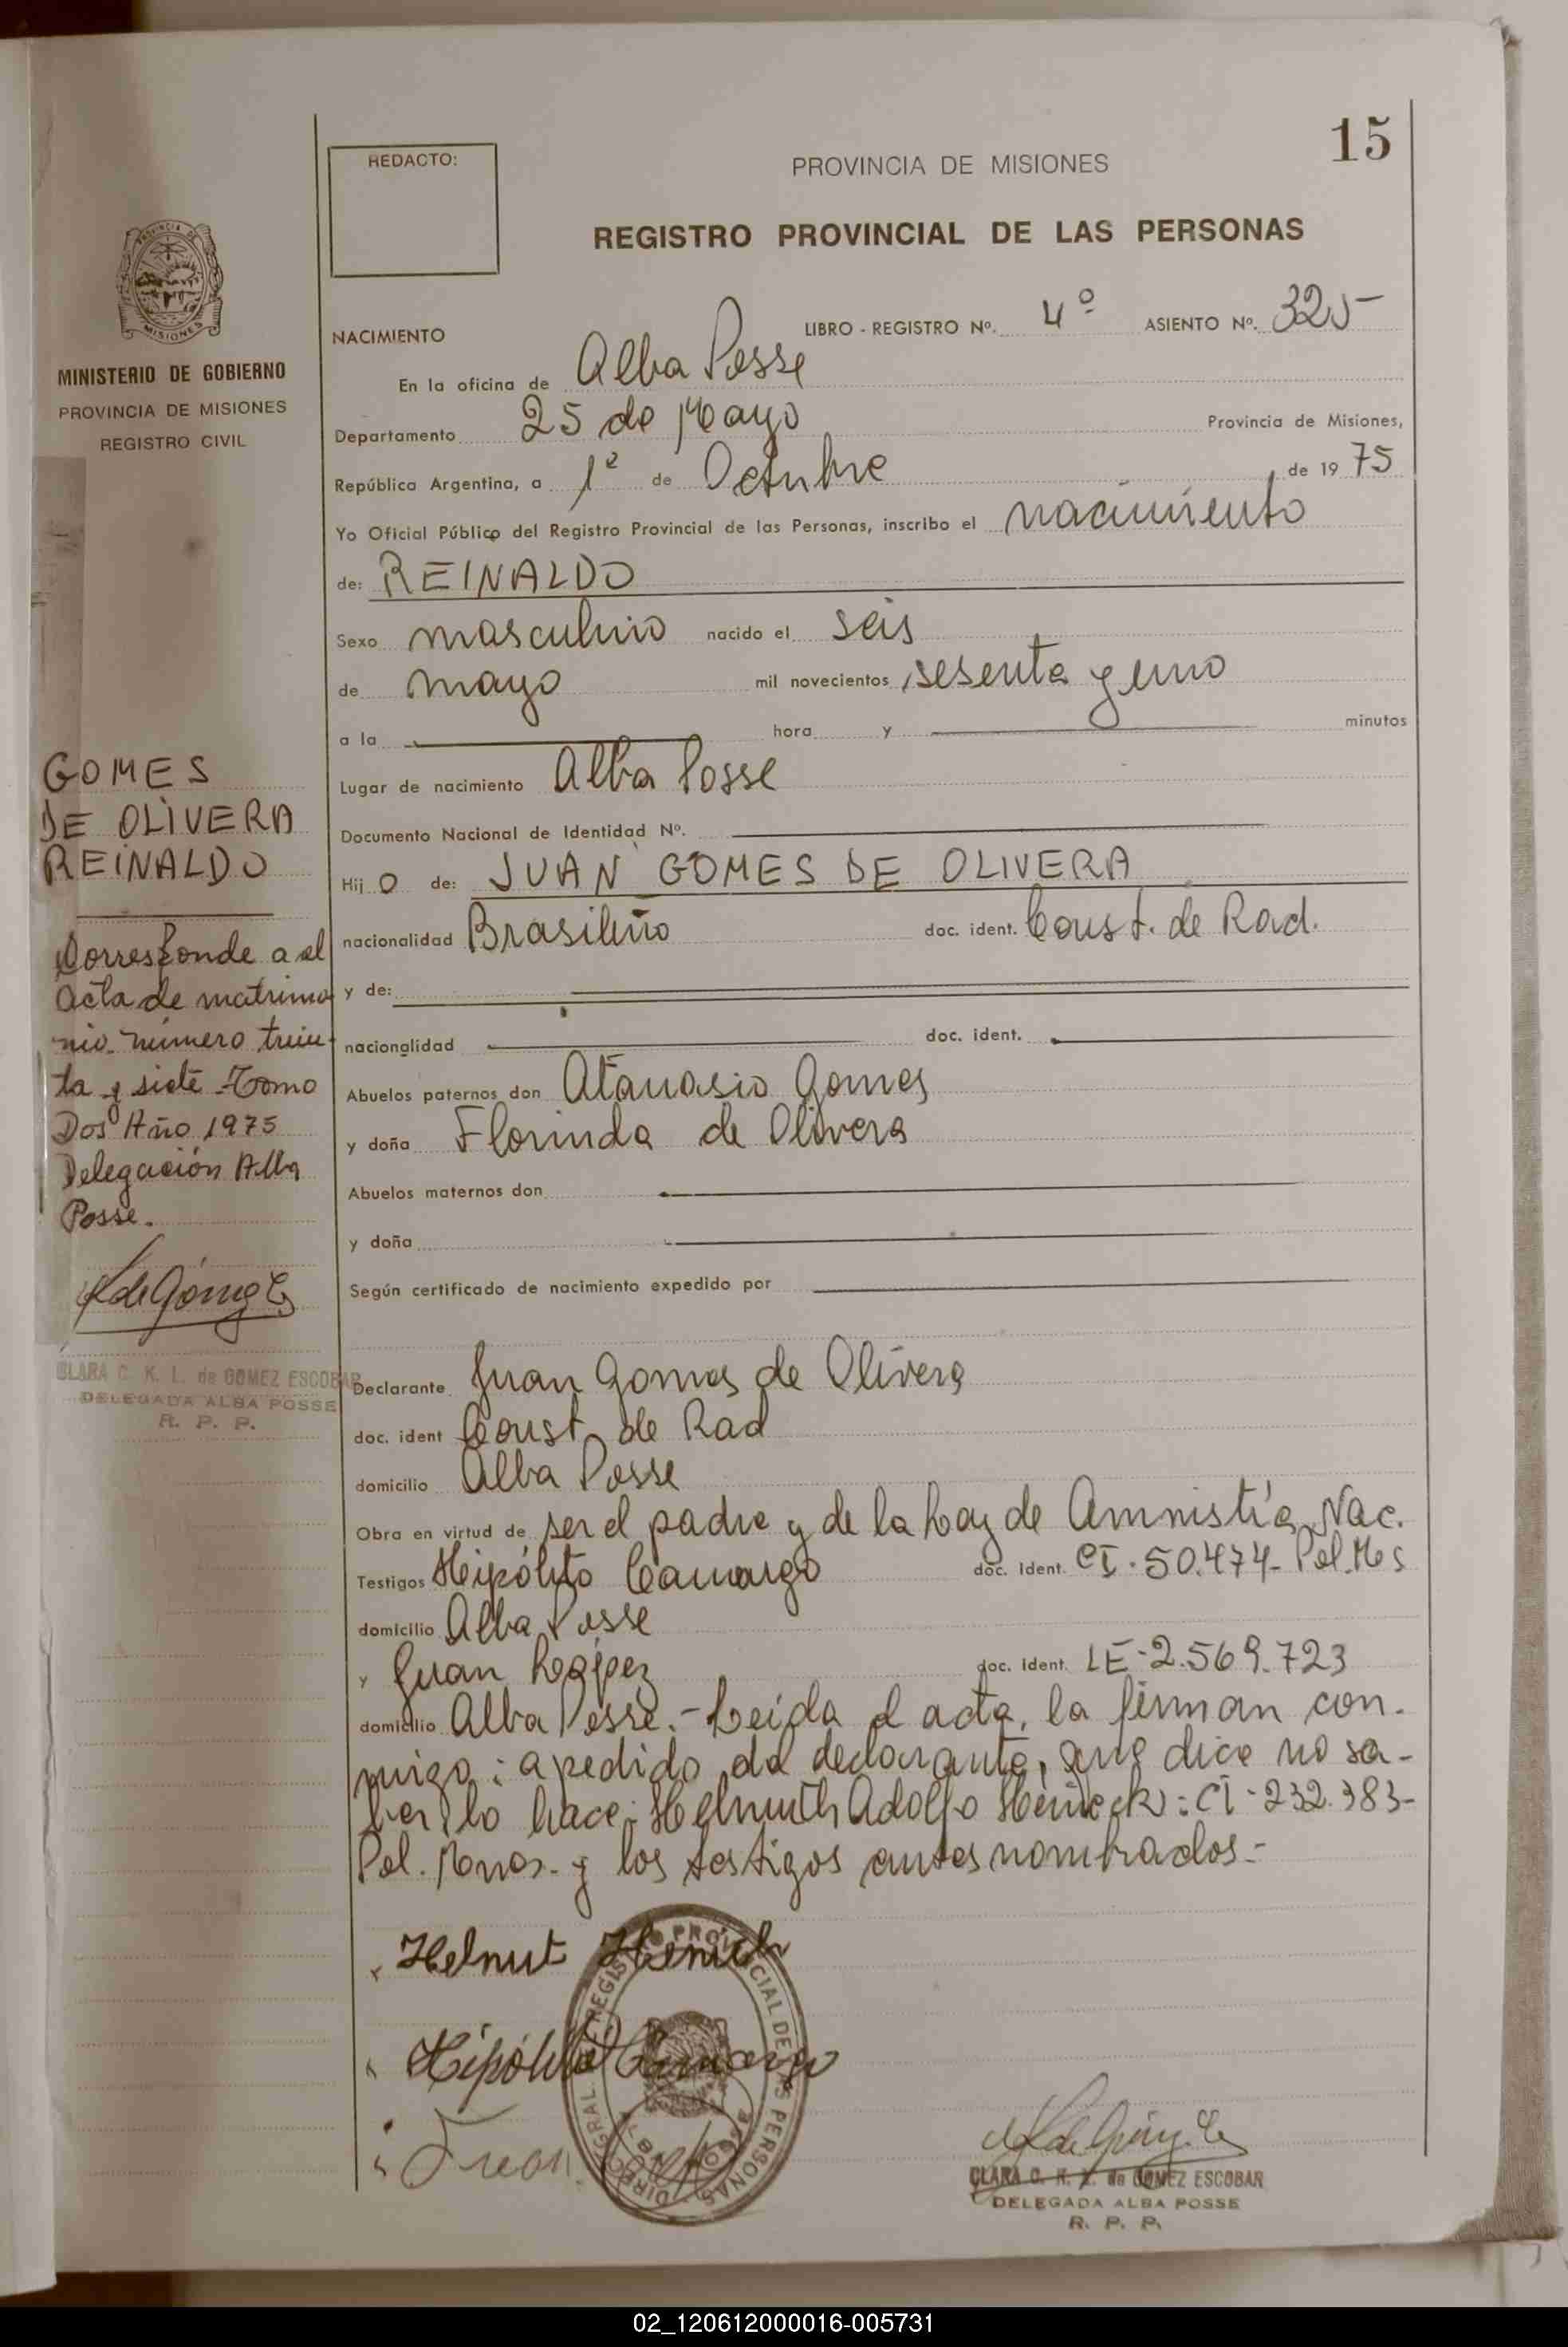 15
REDACTO:
PROVINCIA DE MISIONES
REGISTRO PROVINCIAL DE LAS PERSONAS
NACIMIENTO LIBRO - REGISTRO Nº. 4º ASIENTO Nº. 325-
En la oficina de Alba Posse
Departamento 25 de Mayo Provincia de Misiones,
República Argentina, a 1º de Octubre de 1975
Yo Oficial Público del Registro Provincial de las Personas, inscribo el nacimiento
de: REINALDO
Sexo masculino nacido el seis
de mayo mil novecientos sesenta y uno
a la hora y minutos
Lugar de nacimiento Alba Posse
Documento Nacional de Identidad Nº.
Hijo de: JUAN GOMES DE OLIVERA
nacionalidad Brasileño doc. ident. Const. de Rad.
y de:
nacionalidad doc. ident.
Abuelos paternos don Atanasio Gomes
y doña Florinda de Olivera
Abuelos maternos don
y doña
Según certificado de nacimiento expedido por
Declarante Juan Gomes de Olivera
doc. ident Const. de Rad
domicilio Alba Posse
Obra en virtud de ser el padre y de la Ley de Amnistía Nac.
Testigos Hipólito Camargo doc. Ident. CI. 50.474- Pol. Mes
domicilio Alba Posse
y Juan doc. Ident. LE-2.569.723
domicilio Alba Posse.- Leída el acta, la firman con-
migo: a pedido del declarante, que dice no sa-
ber, lo hace: Helmuth Adolfo CI-232.383-
Pol. y los testigos antes nombrados.-
Helmut Henich
Hipólito Camargo
Juan
DIREC. GRAL. REGISTRO PROVINCIAL DE LAS PERSONAS
CLARA C. K. L. de GOMEZ ESCOBAR
DELEGADA ALBA POSSE
R. P. P.
MISIONES
MINISTERIO DE GOBIERNO
PROVINCIA DE MISIONES
REGISTRO CIVIL
GOMES
DE OLIVERA
REINALDO
Corresponde a el
acta de matrimo
nio número trein-
ta y siete Tomo
Dos Año 1975
Delegación Alba
Posse.
CLARA C. K. L. de GOMEZ ESCOBAR
DELEGADA ALBA POSSE
R. P. P.
02_120612000016-005731